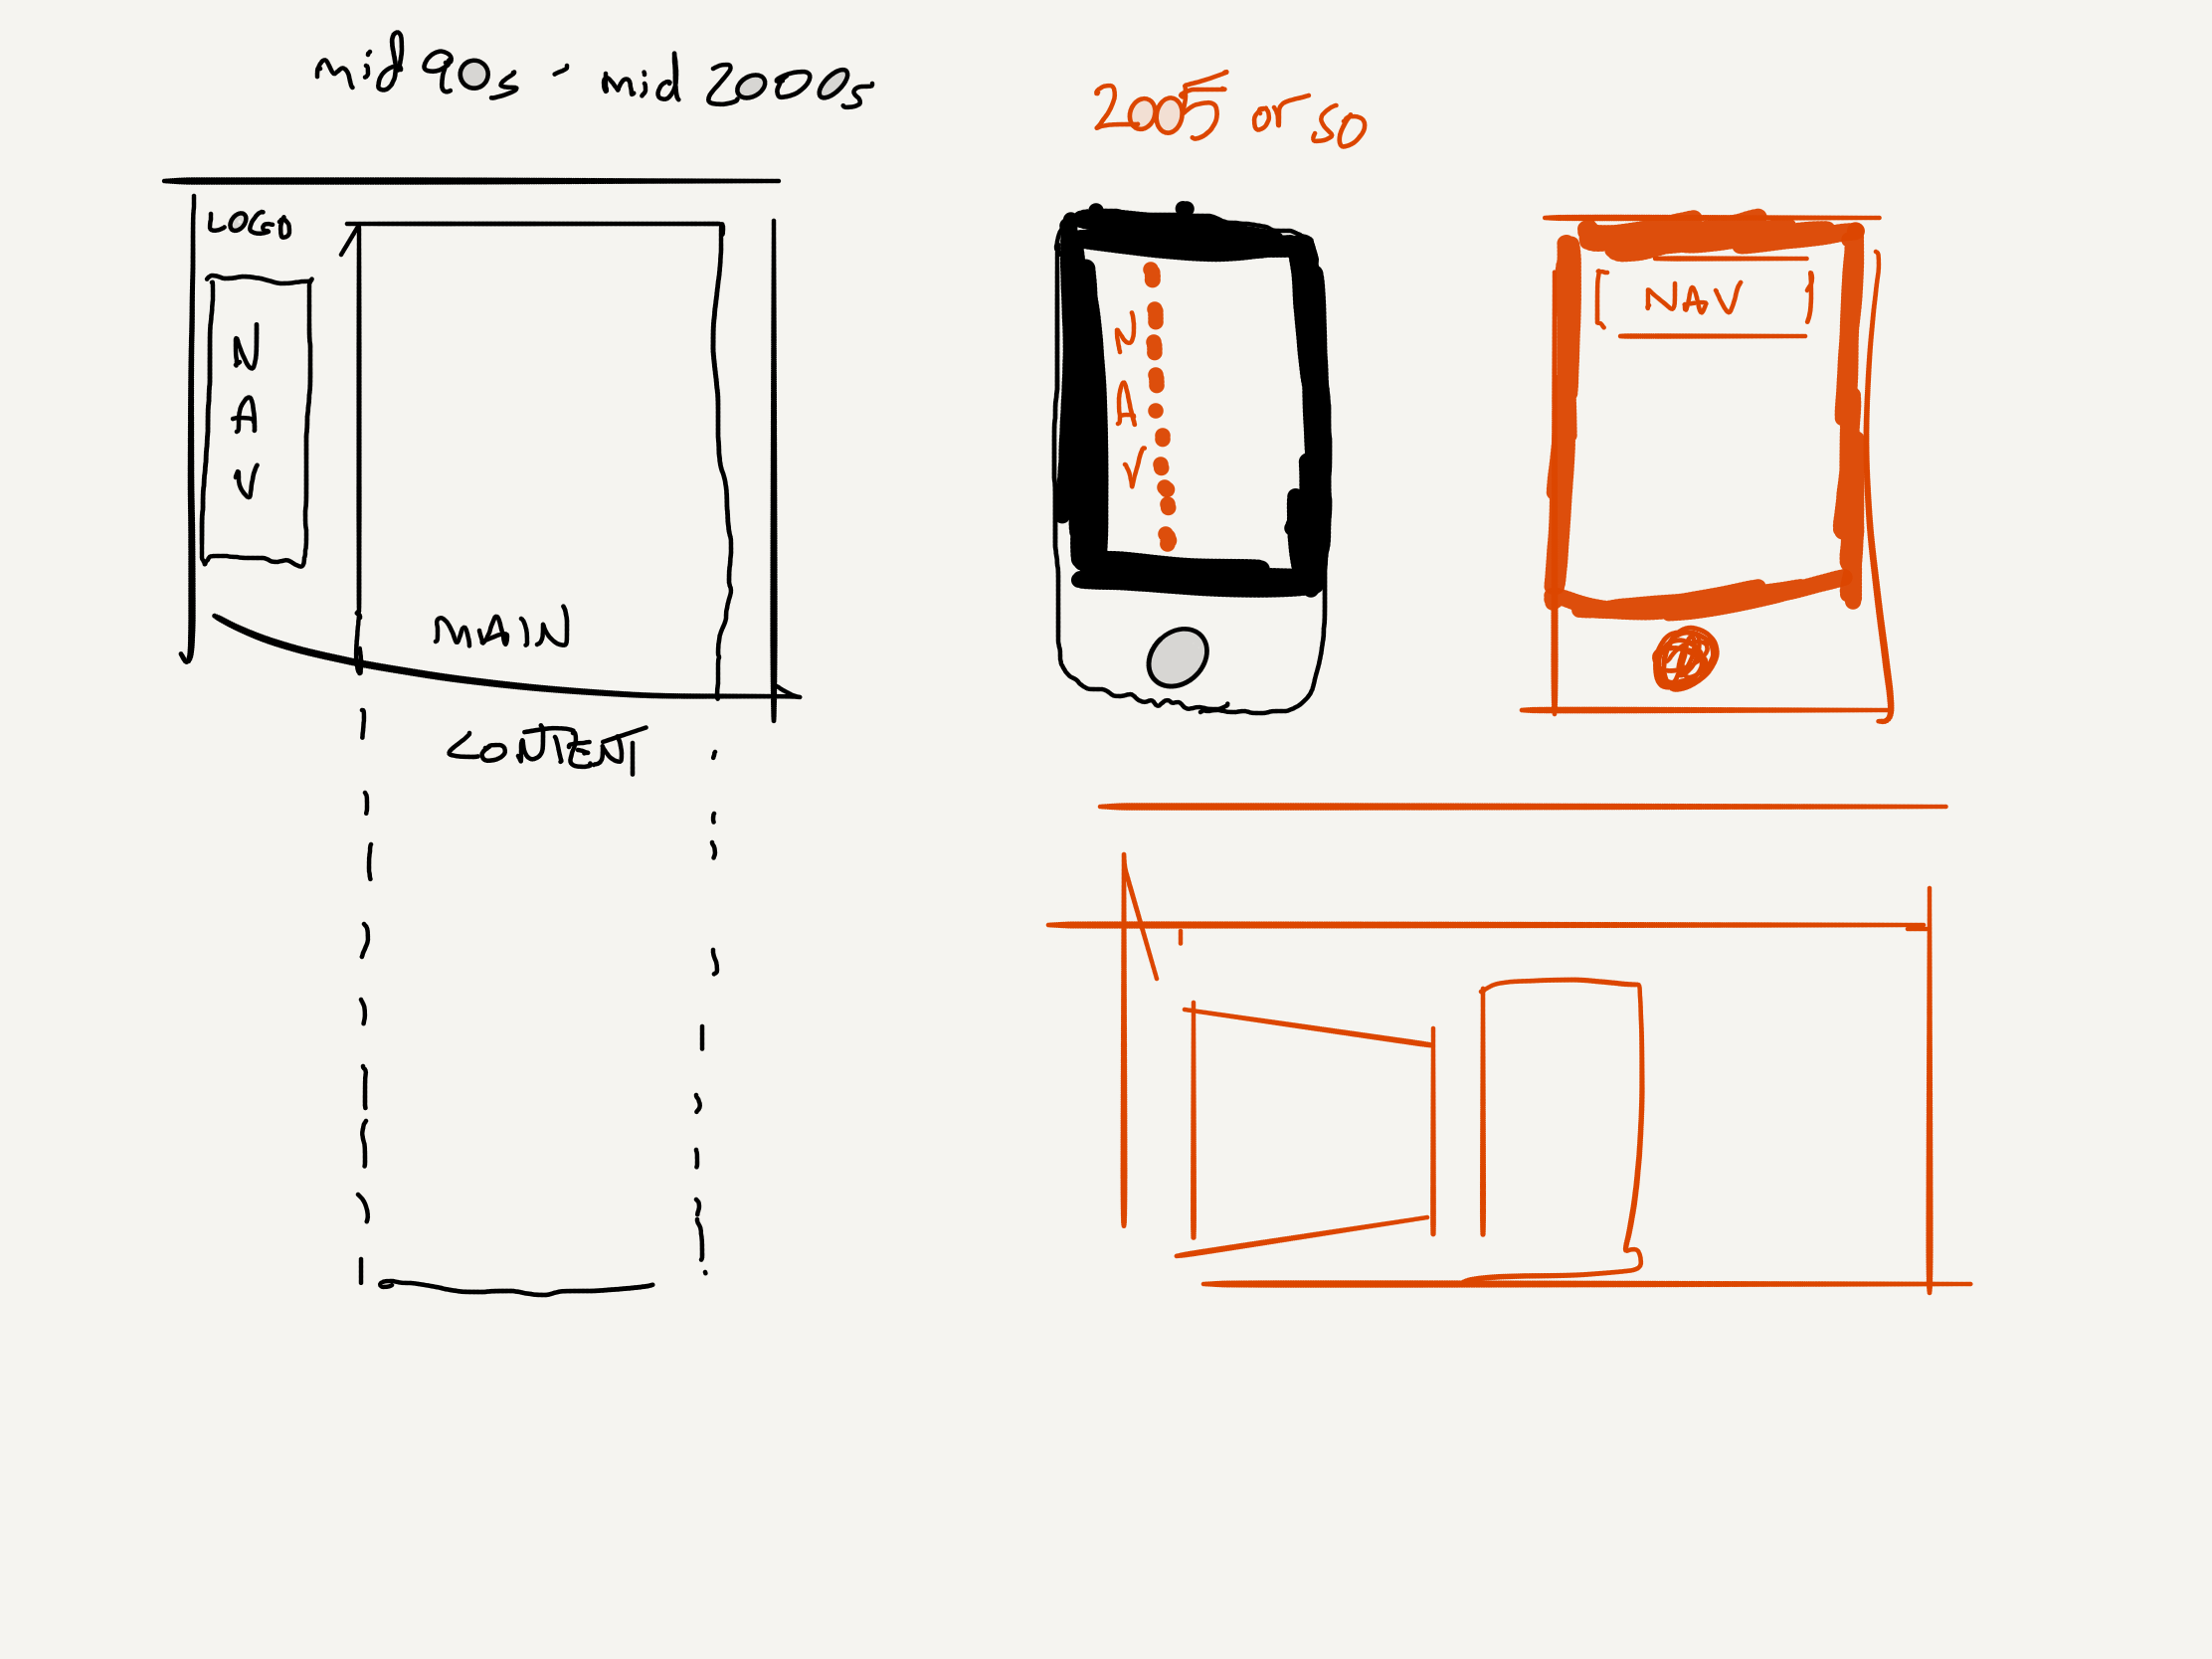 mid 90s - mid 2000s
LOGO
N
A
V
MAIN
CONTENT
2005 or so
N
A
V
NAV